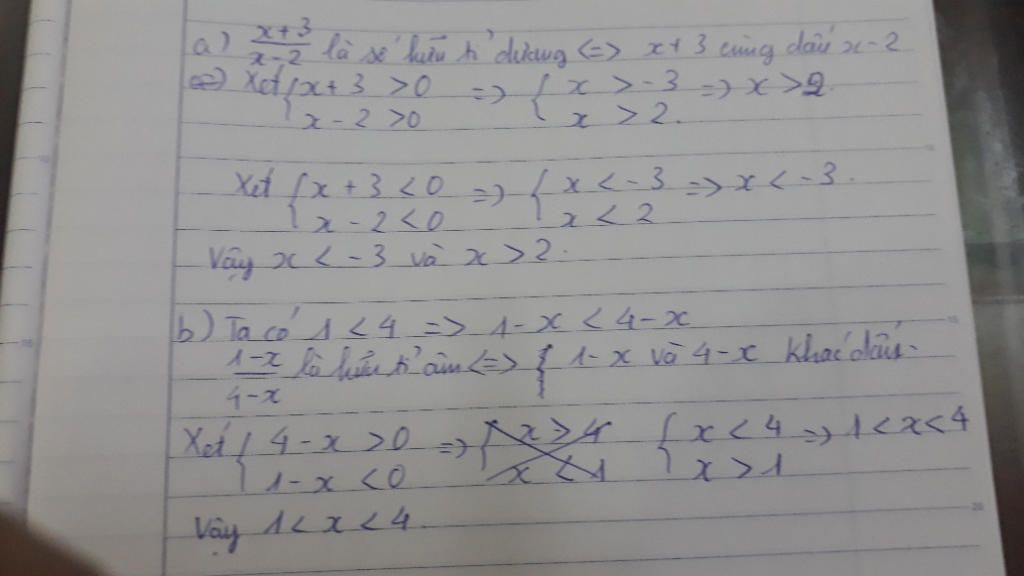 a) x+3/x-2 là số hữu tỉ dương <=> x+3 cùng dấu x-2
=> Xét { x+3 >0 => { x > -3 => x > 2.
x - 2 >0 x > 2.
Xét { x + 3 < 0 => { x < -3 => x < -3.
x - 2 < 0 x < 2
Vậy x < -3 và x > 2.
b) Ta có 1 < 4 => 1-x < 4-x
1-x/4-x là hữu tỉ âm <=> { 1-x và 4-x khác dấu.
Xét { 4-x > 0 => { x > 4 { x < 4 => 1 < x < 4
1-x < 0 x < 1 x > 1
Vậy 1 < x < 4.